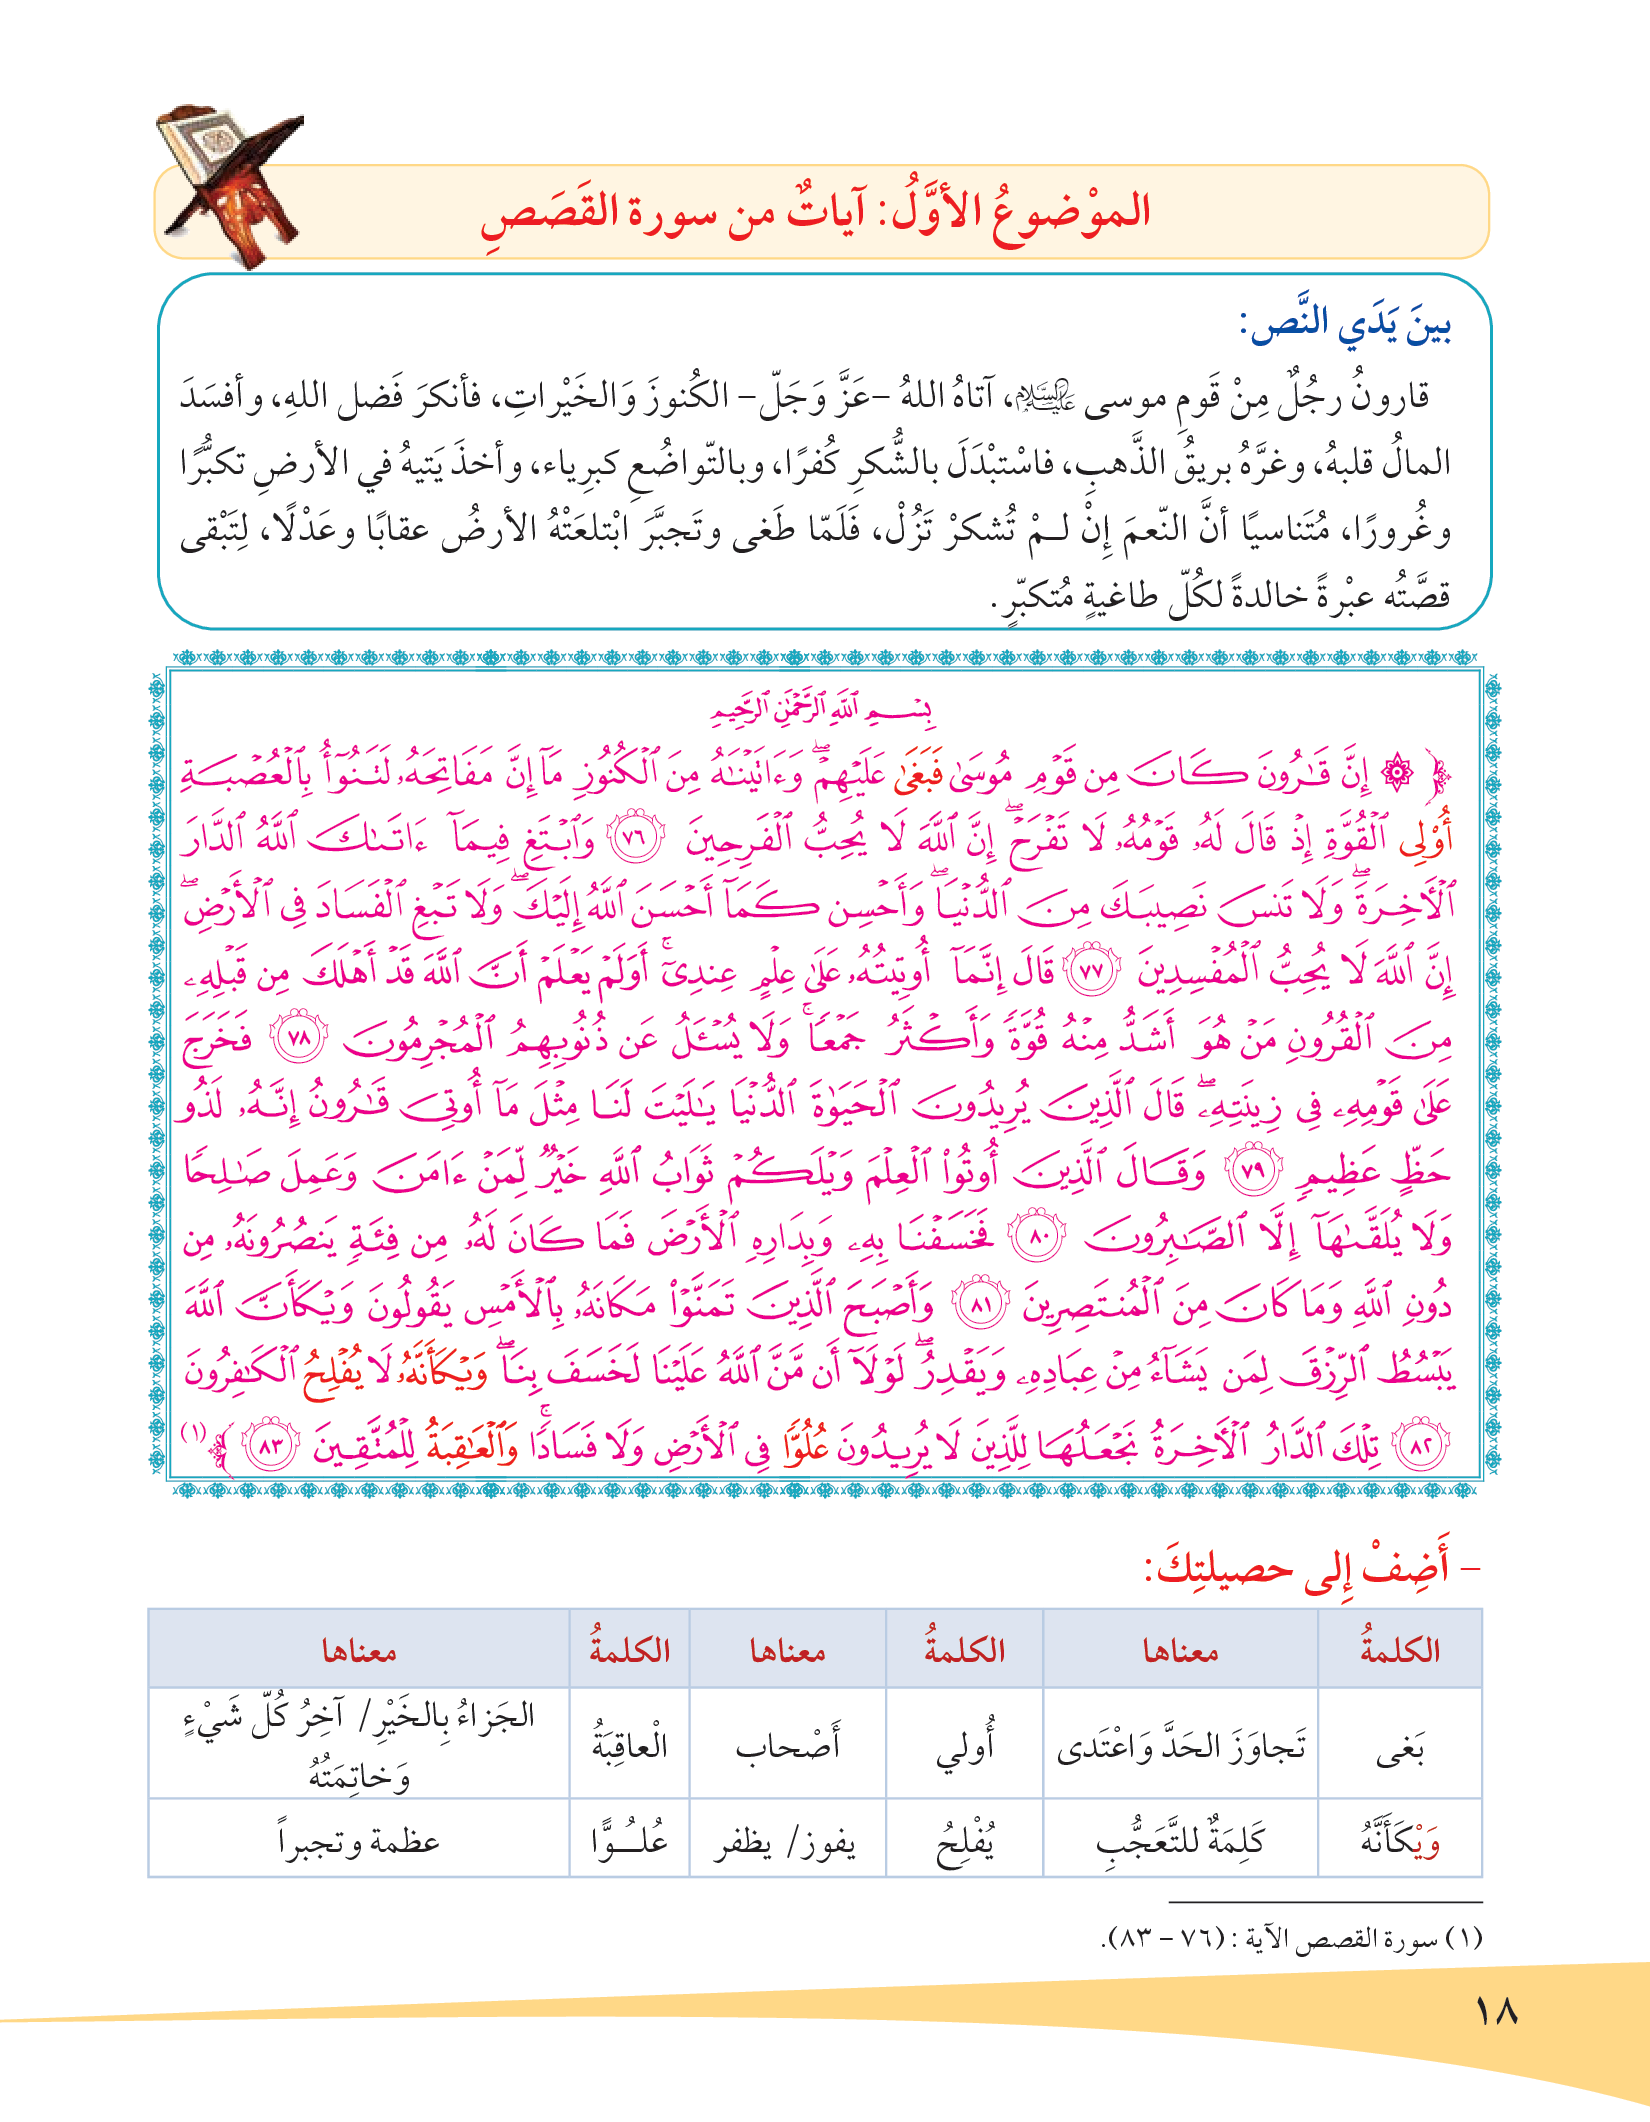 الموْضوعُ الأوَّلُ: آياتٌ من سورة القَصَصِ
بينَ يَدَي النَّص:
قارونُ رجُلٌ مِنْ قَومِ موسى عليه السلام، آتاهُ اللهُ –عَزَّ وَجَلّ– الكُنوزَ وَالخَيْراتِ، فأنكرَ فَضل اللهِ، وأفسَدَ
المالُ قلبهُ، وغرَّهُ بريقُ الذَّهبِ، فاسْتبْدَلَ بالشُّكرِ كُفرًا، وبالتّواضُعِ كبرِياء، وأخذَ يَتيهُ في الأرضِ تكبُّرًا
وغُرورًا، مُتَناسيًا أنَّ النّعمَ إِنْ لـمْ تُشكرْ تَزُلْ، فَلَمّا طَغى وتَجبَّرَ ابْتلعَتْهُ الأرضُ عقابًا وعَدْلًا، لِتَبْقى
قصَّتُه عبْرةً خالدةً لكُلّ طاغيةٍ مُتكبّرٍ.
بِسْمِ ٱللَّهِ ٱلرَّحْمَٰنِ ٱلرَّحِيمِ
﴿ ۞ إِنَّ قَٰرُونَ كَانَ مِن قَوْمِ مُوسَىٰ فَبَغَىٰ عَلَيْهِمْ ۖ وَءَاتَيْنَٰهُ مِنَ ٱلْكُنُوزِ مَآ إِنَّ مَفَاتِحَهُۥ لَتَنُوٓأُ بِٱلْعُصْبَةِ
أُو۟لِى ٱلْقُوَّةِ إِذْ قَالَ لَهُۥ قَوْمُهُۥ لَا تَفْرَحْ ۖ إِنَّ ٱللَّهَ لَا يُحِبُّ ٱلْفَرِحِينَ ٧٦ وَٱبْتَغِ فِيمَآ ءَاتَىٰكَ ٱللَّهُ ٱلدَّارَ
ٱلْءَاخِرَةَ ۖ وَلَا تَنسَ نَصِيبَكَ مِنَ ٱلدُّنْيَا ۖ وَأَحْسِن كَمَآ أَحْسَنَ ٱللَّهُ إِلَيْكَ ۖ وَلَا تَبْغِ ٱلْفَسَادَ فِى ٱلْأَرْضِ ۖ
إِنَّ ٱللَّهَ لَا يُحِبُّ ٱلْمُفْسِدِينَ ٧٧ قَالَ إِنَّمَآ أُوتِيتُهُۥ عَلَىٰ عِلْمٍ عِندِىٓ ۚ أَوَلَمْ يَعْلَمْ أَنَّ ٱللَّهَ قَدْ أَهْلَكَ مِن قَبْلِهِۦ
مِنَ ٱلْقُرُونِ مَنْ هُوَ أَشَدُّ مِنْهُ قُوَّةً وَأَكْثَرُ جَمْعًا ۚ وَلَا يُسْـَٔلُ عَن ذُنُوبِهِمُ ٱلْمُجْرِمُونَ ٧٨ فَخَرَجَ
عَلَىٰ قَوْمِهِۦ فِى زِينَتِهِۦ ۖ قَالَ ٱلَّذِينَ يُرِيدُونَ ٱلْحَيَوٰةَ ٱلدُّنْيَا يَٰلَيْتَ لَنَا مِثْلَ مَآ أُوتِىَ قَٰرُونُ إِنَّهُۥ لَذُو
حَظٍّ عَظِيمٍ ٧٩ وَقَالَ ٱلَّذِينَ أُوتُوا۟ ٱلْعِلْمَ وَيْلَكُمْ ثَوَابُ ٱللَّهِ خَيْرٌ لِّمَنْ ءَامَنَ وَعَمِلَ صَٰلِحًا
وَلَا يُلَقَّىٰهَآ إِلَّا ٱلصَّٰبِرُونَ ٨٠ فَخَسَفْنَا بِهِۦ وَبِدَارِهِ ٱلْأَرْضَ فَمَا كَانَ لَهُۥ مِن فِئَةٍ يَنصُرُونَهُۥ مِن
دُونِ ٱللَّهِ وَمَا كَانَ مِنَ ٱلْمُنتَصِرِينَ ٨١ وَأَصْبَحَ ٱلَّذِينَ تَمَنَّوْا۟ مَكَانَهُۥ بِٱلْأَمْسِ يَقُولُونَ وَيْكَأَنَّ ٱللَّهَ
يَبْسُطُ ٱلرِّزْقَ لِمَن يَشَآءُ مِنْ عِبَادِهِۦ وَيَقْدِرُ ۖ لَوْلَآ أَن مَّنَّ ٱللَّهُ عَلَيْنَا لَخَسَفَ بِنَا ۖ وَيْكَأَنَّهُۥ لَا يُفْلِحُ ٱلْكَٰفِرُونَ
٨٢ تِلْكَ ٱلدَّارُ ٱلْءَاخِرَةُ نَجْعَلُهَا لِلَّذِينَ لَا يُرِيدُونَ عُلُوًّا فِى ٱلْأَرْضِ وَلَا فَسَادًا ۚ وَٱلْعَٰقِبَةُ لِلْمُتَّقِينَ ٨٣ ﴾ (١)
– أَضِفْ إِلى حصيلتِكَ:
الكلمةُ معناها الكلمةُ معناها الكلمةُ معناها
بَغى تَجاوَزَ الحَدَّ وَاعْتَدى أُولي أَصْحاب الْعاقِبَةُ الجَزاءُ بِالخَيْرِ/ آخِرُ كُلّ شَيْءٍ
وَخاتِمَتُهُ
وَيْكَأَنَّهُ كَلِمَةٌ للتَّعَجُّبِ يُفْلِحُ يفوز/ يظفر عُلُـوًّا عظمة وتجبراً
(١) سورة القصص الآية : (٧٦ – ٨٣).
١٨